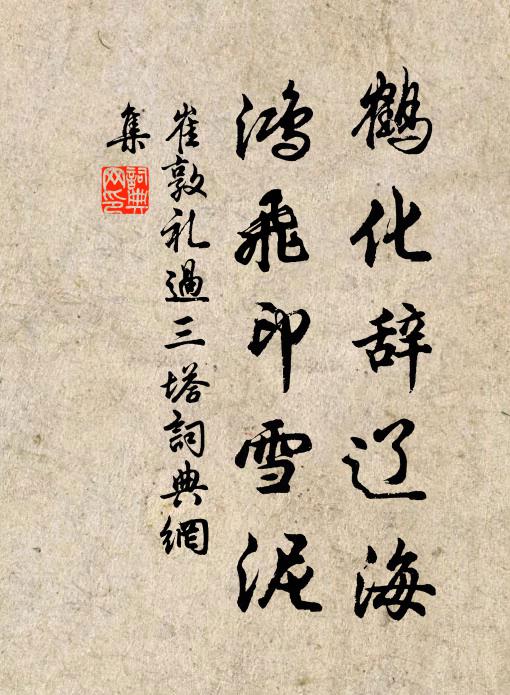 鹤化辞辽海
鸿飞印雪泥
崔敦礼過三塔詞典網
集
詞典
网印